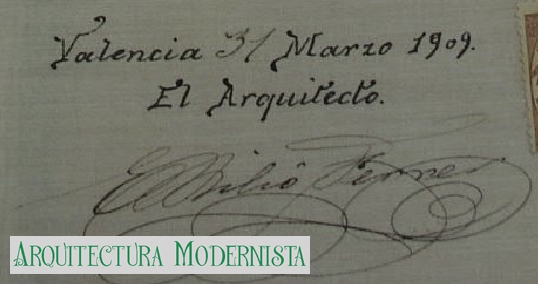 Valencia 31 Marzo 1909.
El Arquitecto.
Emilio Ferrer
ARQUITECTURA MODERNISTA